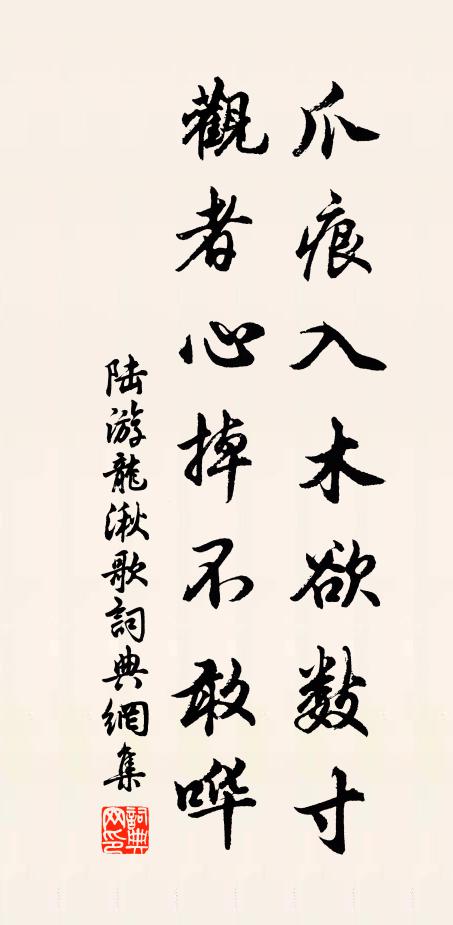 爪痕入木欲數寸
觀者心掉不敢哗
陆游龍湫歌詞典網集
詞典網印